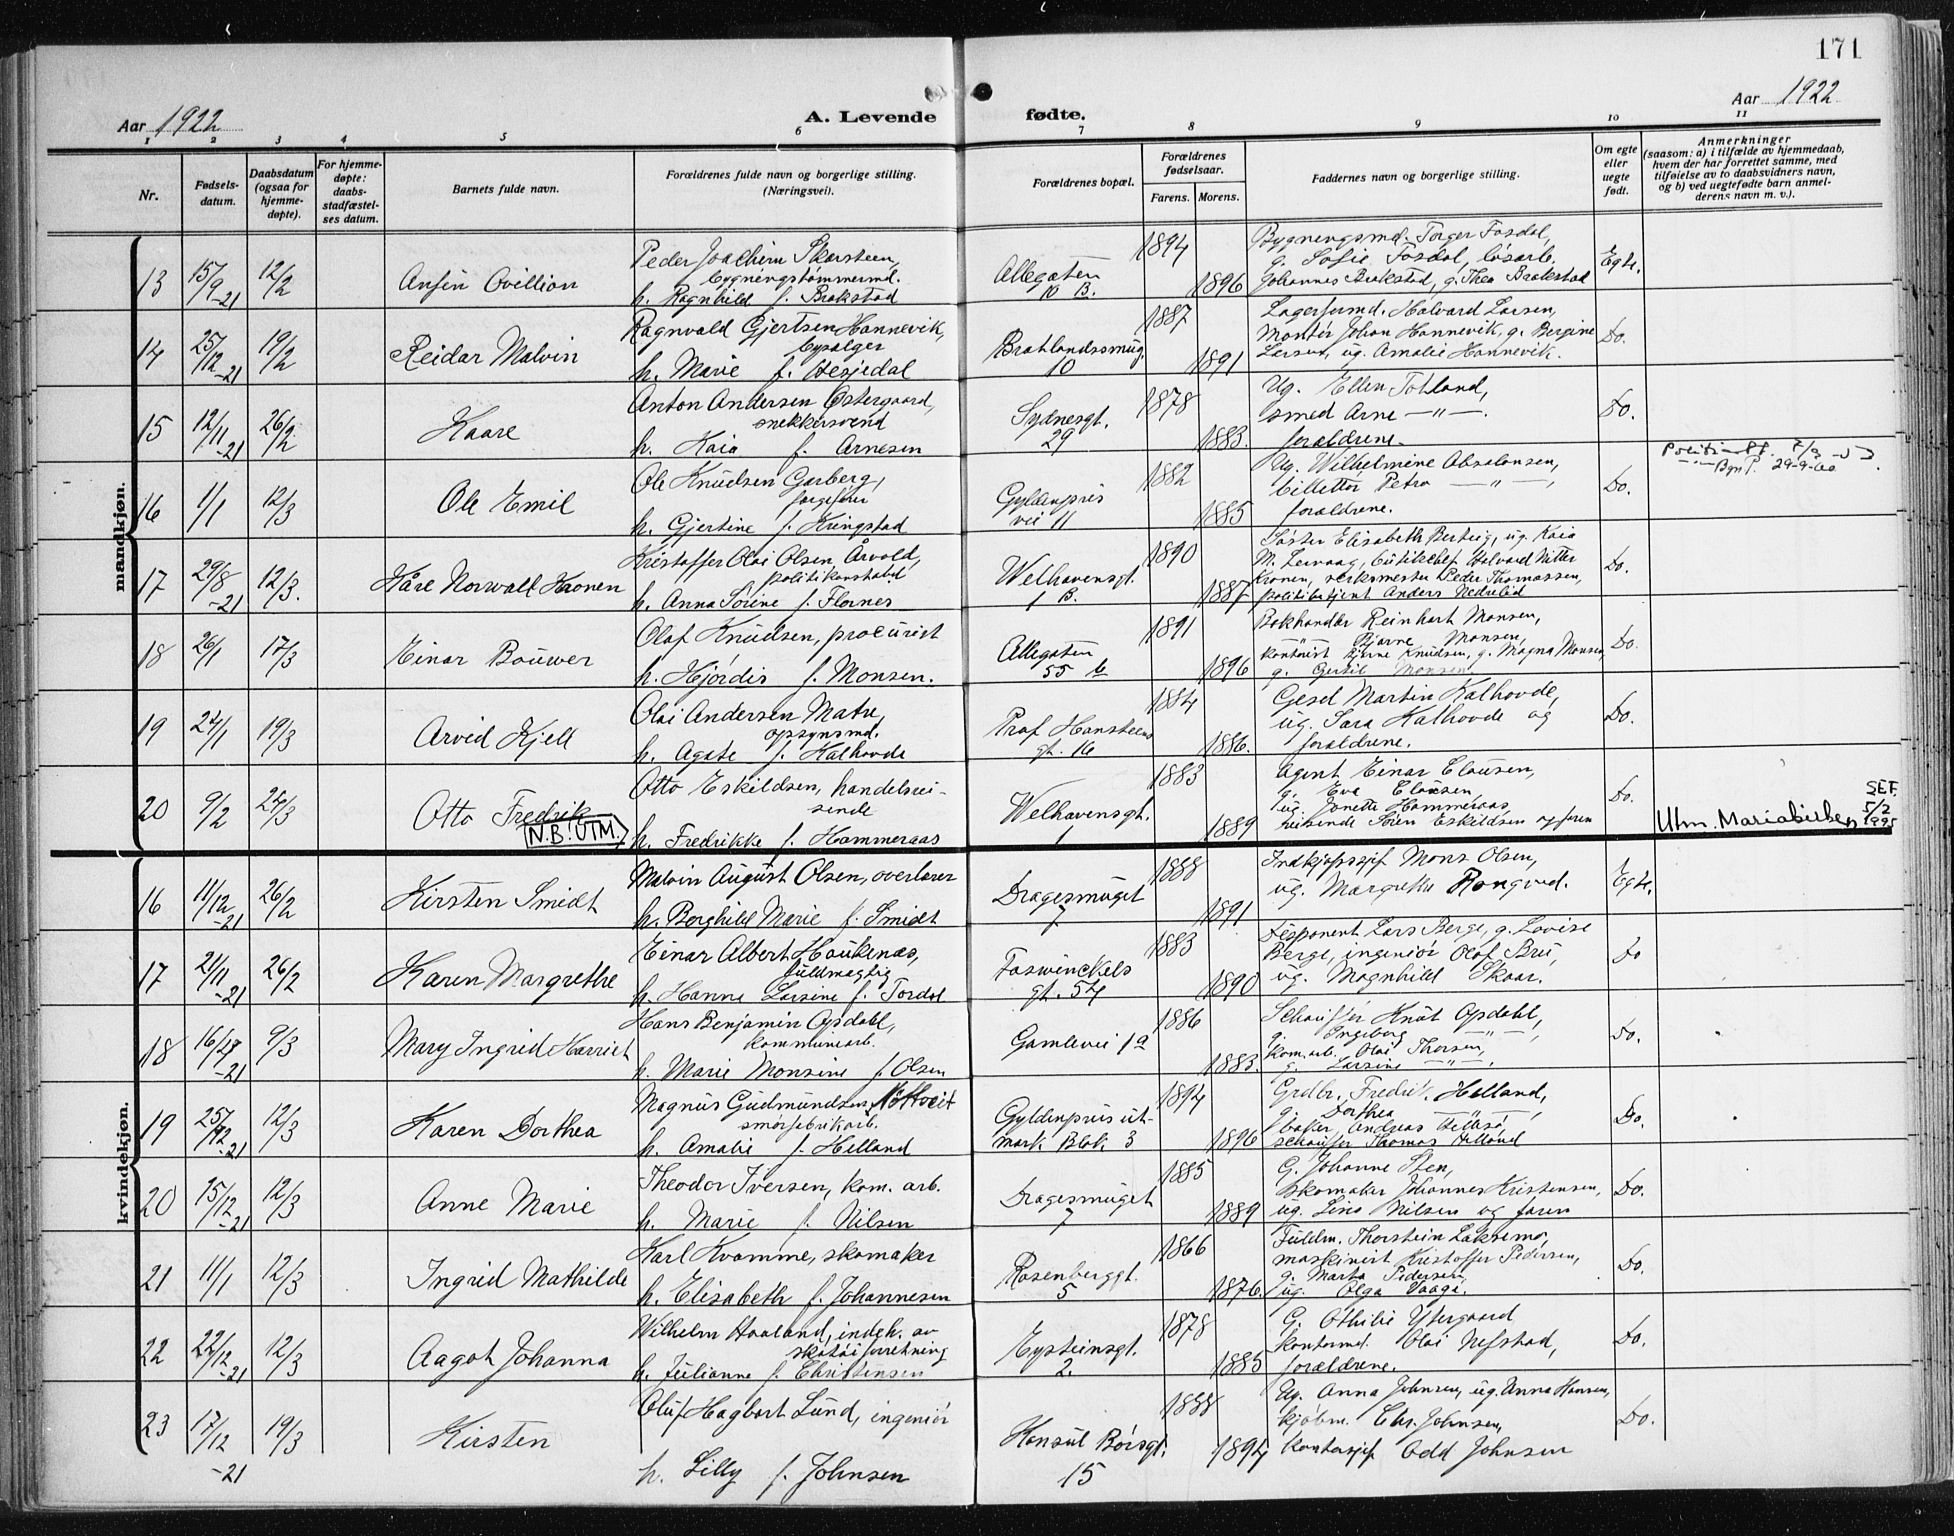 171
Aar 1922
A. Levende fødte.
Aar 1922
1 2 3 4 5 6 7 8 9 10 11
Nr.
Fødsels-
datum.
Daabsdatum
(ogsaa for
hjemme-
døpte).
For hjemme-
døpte:
daabs-
stadfæstel-
ses datum.
Barnets fulde navn.
Forældrenes fulde navn og borgerlige stilling.
(Næringsvei).
Forældrenes bopæl.
Forældrenes
fødselsaar.
Farens. Morens.
Faddernes navn og borgerlige stilling.
Om egte
eller
uegte
født.
Anmerkninger
(saasom: a) i tilfælde av hjemmedaab,
hvem der har forrettet samme, med
tilføielse av to daabsvidners navn,
og b) ved uegtefødte barn anmel-
derens navn m. v.).
mandkjøn.
13 15/9 -21 12/2 Ansin Ovillion
Peder Joachim Skarsteen,
bygningstømmermd.
h. Ragnhild f. Brakstad
Allegaten
10 B.
1894 1896
Bygningsmd. Torger Fosdal,
g. Sofie Fosdal, løsarb.
Johannes Brakstad, g. Thea Brakstad
Egte.
14 25/12 -21 19/2 Reidar Malvin
Ragnvald Gjertsen Hannevik,
h. Marie f. Hesjedal
Bratlandssmug.
10
1887 1891
Halvard Larsen,
Montør Johan Hannevik, g. Bergine
Larsen, ug. Amalie Hannevik.
Do.
15 12/11 -21 26/2 Kaare
Anton Andersen Østergaard,
snekkersvend
h. Kaia f. Arnesen
Sydnesgt.
29
1878 1883.
Ug. Ellen Totland,
smed Arne —"—.
forældrene.
Do.
16 1/1 12/3 Ole Emil
Ole Knudsen Garberg,
h. Gjertine f. Kringstad
Gyldenpris
vei 11
1882 1885
Ug. Wilhelmine Absalonsen,
Petra —"—,
forældrene.
Do.
29-9-60
17 29/8 -21 12/3. Kåre Norwall Kronen
Kristoffer Olai Olsen Årvold,
politikonstabel
h. Anna Sørine f. Flornes
Welhavensgt.
1 B.
1890 1887
Søster Elisabeth Berteig, ug. Kaia
M. Lervaag, butikchef Halvard Nitter
Kronen, verksmester Peder Thomassen,
politibetjent Anders Nedrelid
Do.
18 26/1 17/3 Einar Bouwer
Olaf Knudsen, procurist
h. Hjørdis f. Monsen.
Allegaten
55 b
1891 1896
Bokhandler Reinhart Monsen,
Bjarne Monsen,
kontorist Bjarne Knudsen, g. Magna Monsen,
g. Gertil Monsen
Do.
19 24/1 19/3 Arvid Kjell
Olai Andersen Matre,
opsynsmd.
h. Agate f. Kalhovde
Prof Hansteens
gt. 16
1884 1886.
Gesel Martin Kalhovde,
ug. Sara Kalhovde og
forældrene.
Do.
20 9/2 24/3 Otto Fredrik
N.B! UTM.
Otto Eskildsen, handelsrei-
sende
h. Fredrikke f. Hammeraas
Welhavensgt.
1
1883 1889
Agent Einar Clausen,
g. Eva Clausen,
ug. Jonette Hammeraas,
reisende Søren Eskildsen og faren
Do.
Utm. Mariakirken
SEF.
5/2
1995
kvindekjøn.
16 11/12 -21 26/2 Kirsten Smidt
Malvin August Olsen, overlærer
h. Borghild Marie f. Smidt
Dragesmuget
7
1888 1891
Indkjøpssjef Mons Olsen,
ug. Margrethe Rongved.
Egte.
17 21/11 -21 26/2 Karen Margrethe
Einar Albert Haukenæs,
fuldmægtig
h. Hanna Larsine f. Tordal
Foswinckels
gt. 54
1883 1890
Disponent Lars Berge, g. Lovise
Berge, ingeniør Olaf Bru,
ug. Magnhild Skaar.
Do
18 -21 9/3 Mary Ingrid Harriet
Hans Benjamin Opdahl,
kommunearb.
h. Marie Monsine f. Olsen
Gamlevei 1a
1886 1883.
Schauffør Knut Opdahl,
g. Ingeborg —"—,
kom.arb. Olai Thorsen,
g. Larsine —"—.
Do.
19 25/12 -21 12/3 Karen Dorthea
Magnus Gudmundsen Nøttveit
smørfabrikarb.
h. Amalie f. Helland
Gyldenpris ut-
mark Blok 3
1894 1896
Grdbr. Fredrik Helland,
g. Dorthea —"—,
baker Andreas
schauffør Thomas Helland
Do.
20 15/12 -21 12/3 Anne Marie
Theodor Iversen, kom. arb.
h. Marie f. Nilsen
Dragesmuget
7
1885 1889
G. Johanne Sten,
skomaker Johannes Kristensen,
ug. Lina Nilsen og faren
Do.
21 11/1 12/3 Ingrid Mathilde
Karl Kvamme, skomaker
h. Elisabeth f. Johannesen
Rosenberggt.
5
1866 1876.
Fuldm. Thorstein Laksemo,
maskinist Kristoffer Pedersen,
g. Marta Pedersen,
ug. Olga Vaage.
Do.
22 22/12 -21 12/3 Aagot Johanna
Wilhelm Haaland, indeh. av
skotøiforretning
h. Julianne f. Christensen
Eysteinsgt.
2.
1878 1885
G. Othilie Ystergaard
kontormd. Olai Nefstad,
forældrene.
Do.
23 17/12 -21 19/3 Kirsten
Oluf Hagbart Lund, ingeniør
h. Lilly f. Johnsen
Konsul Børsgt.
15
1888 1894
Ug. Anna Johnsen, ug. Anna Hansen,
kjøbm. Chr. Johnsen,
kontorsjef Odd Johnsen
Do.